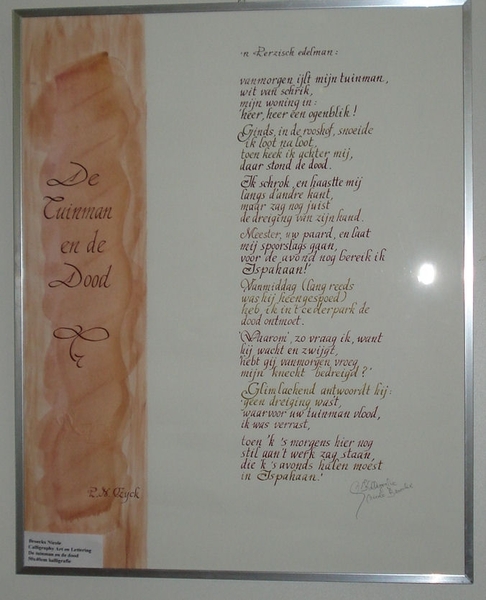 De
Tuinman
en de
Dood
P.N. v. Eyck
'n Perzisch edelman:
vanmorgen ijlt mijn tuinman,
wit van schrik,
mijn woning in:
'heer, heer één ogenblik!
Ginds, in de rooshof, snoeide
ik loot na loot,
toen keek ik achter mij,
daar stond de dood.
Ik schrok, en haastte mij
langs d'andre kant,
maar zag nog juist
de dreiging van zijn hand.
Meester, uw paard, en laat
mij spoorslags gaan,
voor de avond nog bereik ik
Ispahaan!'
Vanmiddag (lang reeds
was hij heengespoed)
heb ik in 't cederpark de
dood ontmoet.
'Waarom', zo vraag ik, want
hij wacht en zwijgt,
'hebt gij vanmorgen vroeg
mijn knecht bedreigd?'
Glimlachend antwoordt hij:
'geen dreiging was't,
waarvoor uw tuinman vlood,
ik was verrast,
toen 'k 's morgens hier nog
stil aan 't werk zag staan,
die 'k 's avonds halen moest
in Ispahaan.'
Calligraphy Art en Lettering
De tuinman en de dood